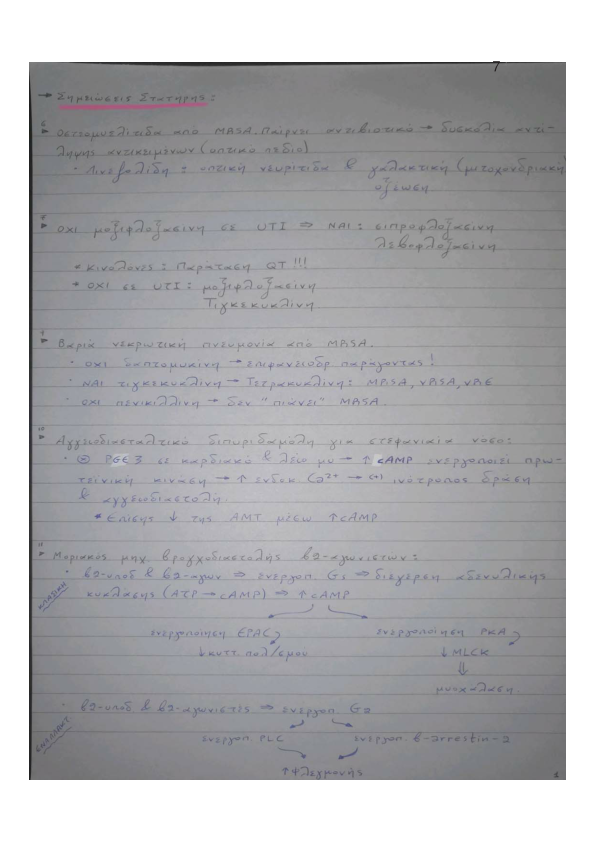 7
→ Σημειώσεις Στατηρης:
6
▸ Οστεομυελίτιδα από MRSA. Παίρνει αντιβιοτικό → δυσκολία αντί-
ληψης αντικειμένων (οπτικό πεδίο)
· Λινεζολίδη: οπτική νευρίτιδα & γαλακτική (μιτοχονδριακή)
οξέωση
▸ ΟΧΙ μοξιφλοξασίνη σε UTI ⇒ ΝΑΙ: σιπροφλοξασίνη
λεβοφλοξασίνη
* κινολόνες: Παράταση QT !!!
* ΟΧΙ σε UTI: μοξιφλοξασίνη
Τιγκεκυκλίνη
▸ Βαριά νεκρωτική πνευμονία από MRSA.
· ΟΧΙ δαπτομυκίνη → επιφανειοδρ παράγοντας!
· ΝΑΙ τιγκεκυκλίνη → Τετρακυκλίνη: MRSA, VRSA, VRE
· ΟΧΙ πενικιλλίνη → δεν "πιάνει" MRSA.
10
▸ Αγγειοδιασταλτικό διπυριδαμόλη για στεφανιαία νόσο:
· ⊖ PDE 3 σε καρδιακό & λείο μυ → ↑ cAMP ενεργοποιεί πρω-
τεϊνική κινάση → ↑ ενδοκ Ca²⁺ → (+) ινότροπος δράση
& αγγειοδιαστολή.
* Επίσης ↓ της ΑΜΤ μέσω ↑cAMP
11
▸ Μοριακός μηχ. βρογχοδιαστολής β2-αγωνιστών:
· β2-υποδ & β2-αγων ⇒ ενεργοπ. Gs ⇒ διέγερση αδενυλικής
ΚΛΑΣΙΚΗ
κυκλάσης (ATP → cAMP) ⇒ ↑ cAMP
ενεργοποίηση EPAC ενεργοποίηση PKA
↓κυττ. πολ/σμού ↓ MLCK
⇓
μυοχάλαση
· β2-υποδ & β2-αγωνιστές ⇒ ενεργοπ.
ενεργοπ. PLC ενεργοπ. β-arrestin-2
↑ Φλεγμονής
1